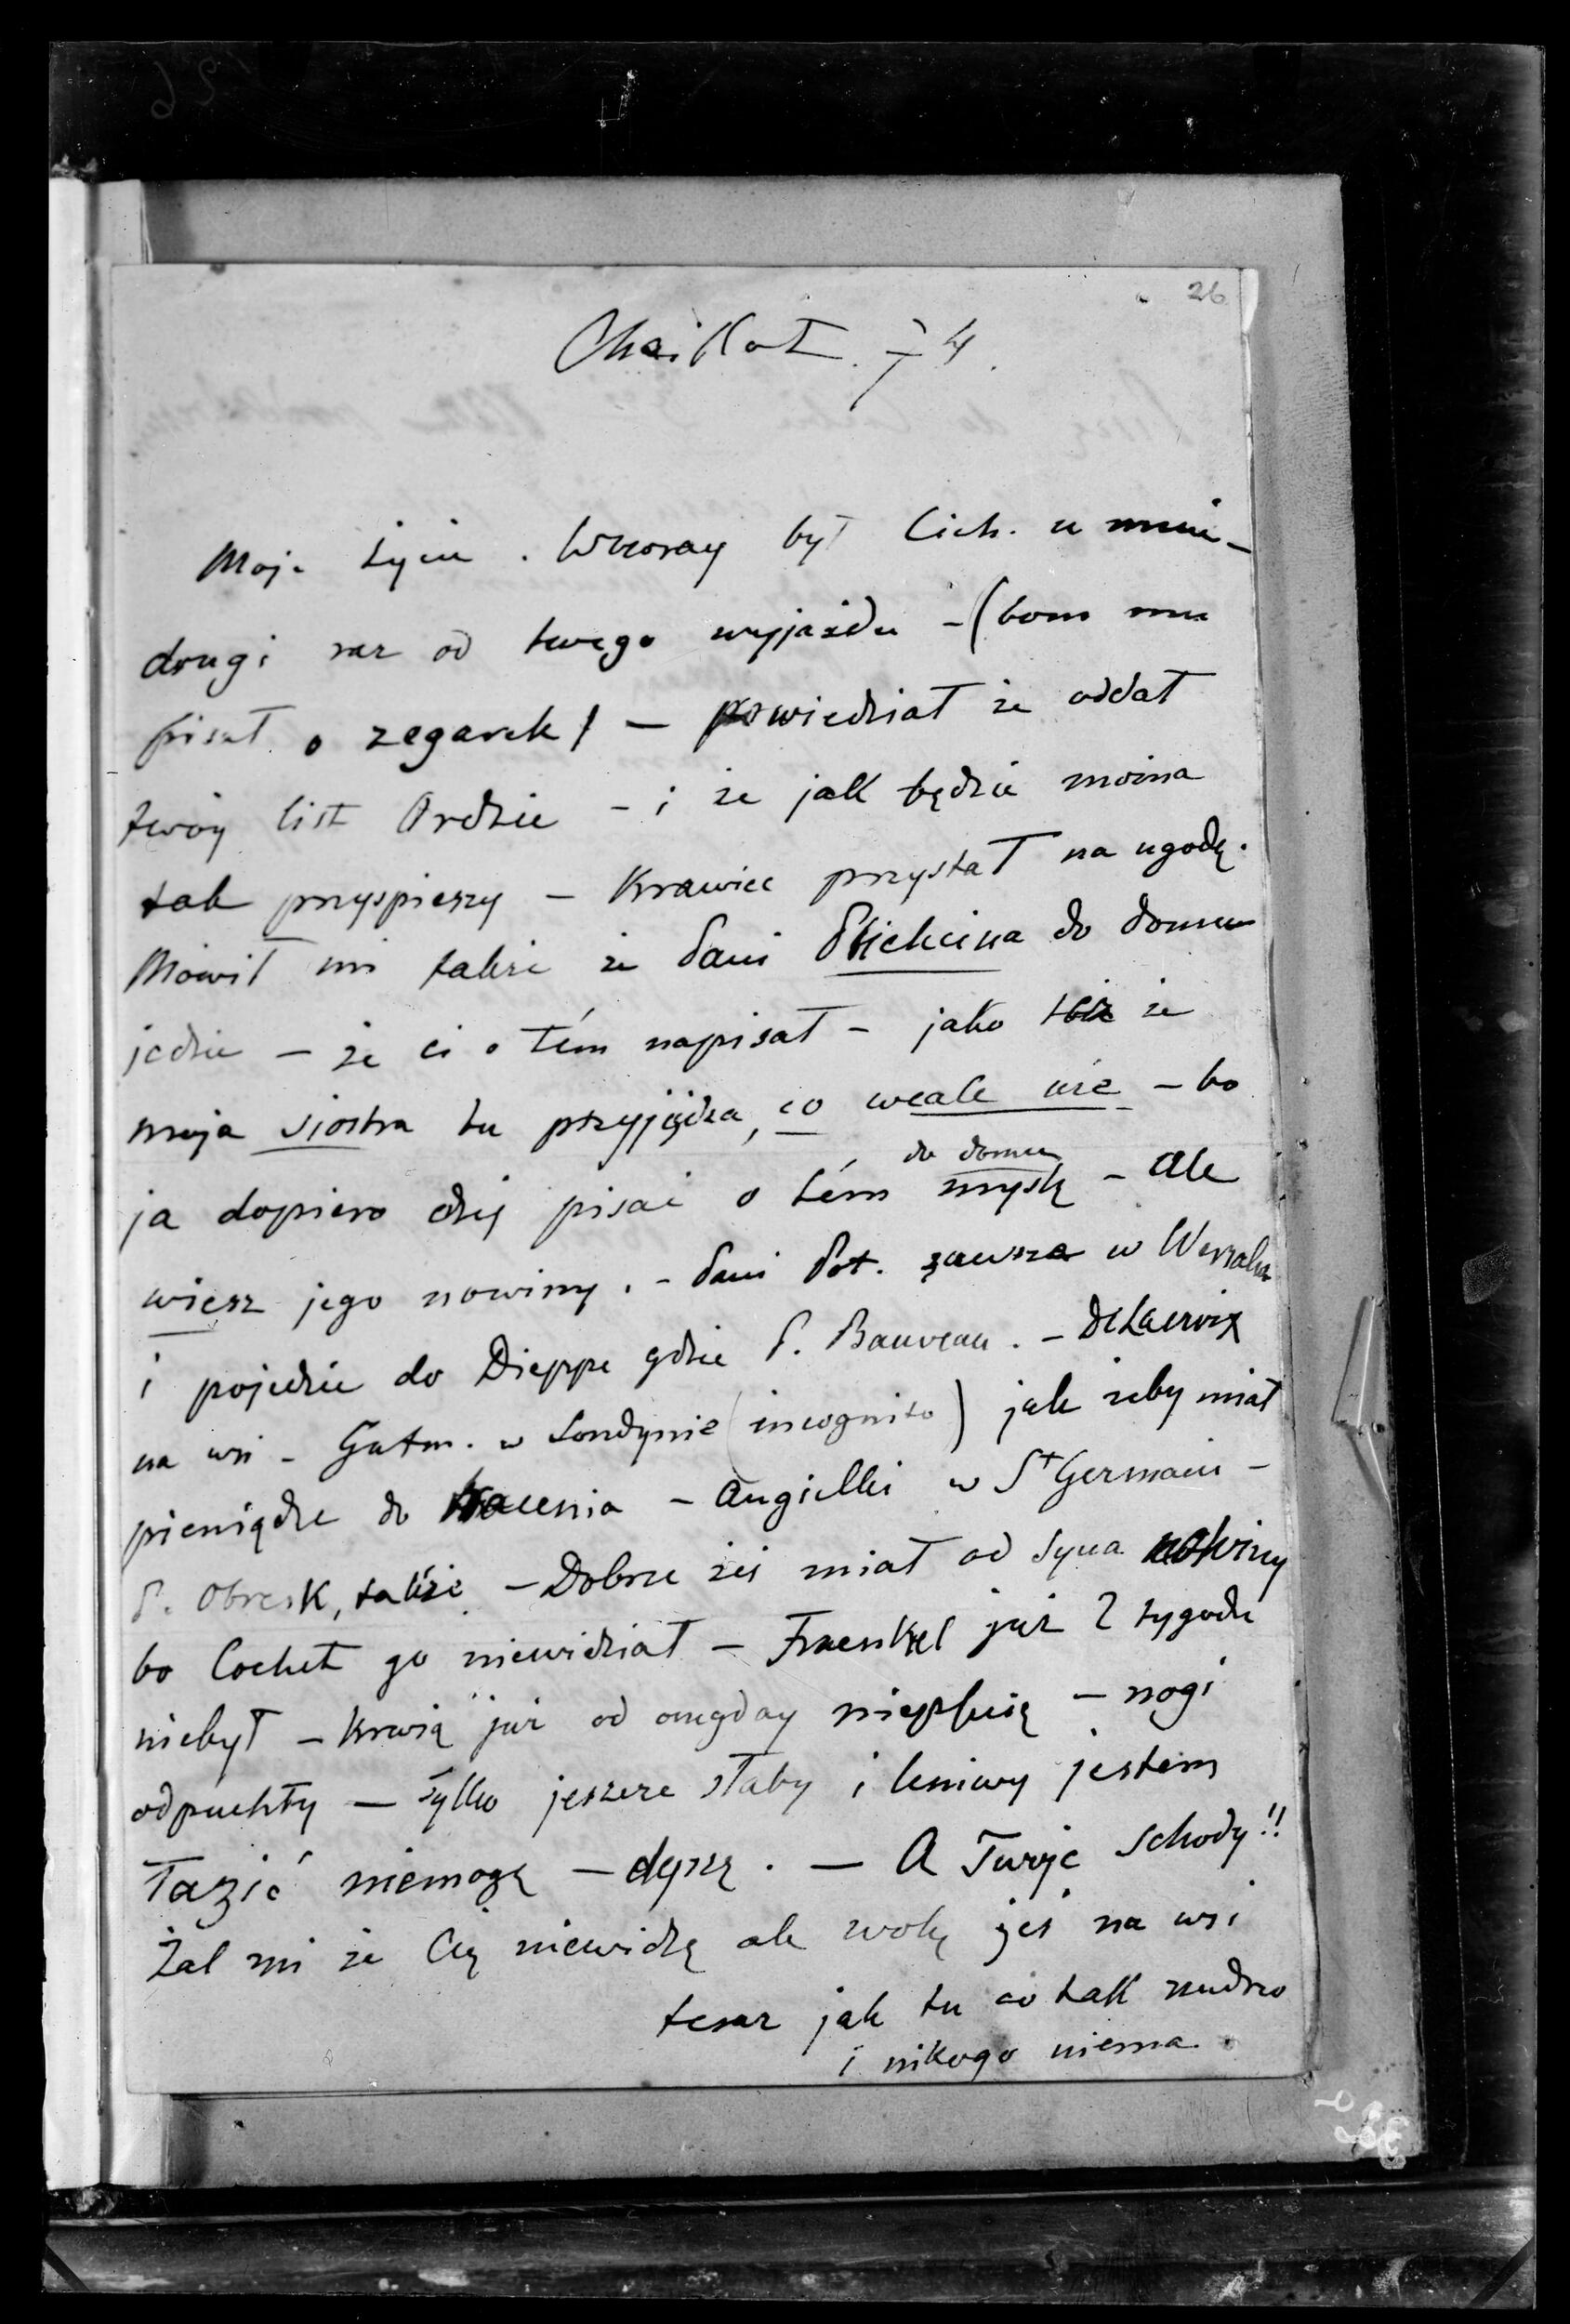 26
Chaillot. 74.
Moje życie. Wczoray był Cich. u mnie -
drugi raz od twego wyjazdu - (bom mu
pisał o zegarek) - powiedział że oddał
twóy list Ordzie - i że jak będzie można
tak przyspieszy - Krawiec przystał na ugodę.
Mówił mi także że Pani Plichcina do domu
jedzie - że ci o tém napisał - jako też że
moja siostra tu przyjeżdża, co wcale nie - bo
do domu
ja dopiero dziś pisać o tém myślę - ale
wiesz jego nowiny. - Pani Pot. zawsze w Wersalu
i pojedzie do Dieppe gdzie P. Bauveau. - DeLacroix
na wsi - Gutm. w Londynie (incognito) jak żeby miał
pieniądze do tracenia - Angielki w St Germain -
P. Obresk, także - Dobrze żeś miał od syna nowiny
bo Cochet go niewidział - Fraenkel już 2 tygodn
niebył - krwią już od onegday niepluię - nogi
odpuchły - tylko jeszcze słaby i leniwy jestem
łazić niemogę - dyszę. - A Twoje Schody!!
Żal mi że Cię niewidzę ale wolę żeś na wsi
teraz jak tu co tak nudno
i nikogo niema.